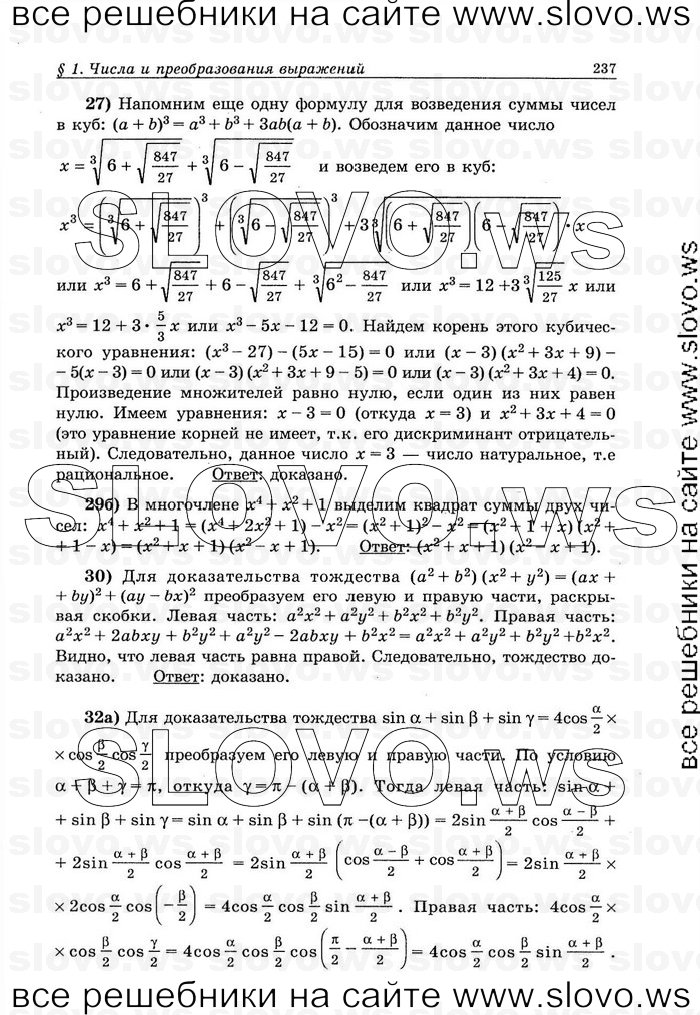 все решебники на сайте www.slovo.ws
§ 1. Числа и преобразования выражений 237
27) Напомним еще одну формулу для возведения суммы чисел
в куб: (a + b)³ = a³ + b³ + 3ab(a + b). Обозначим данное число
x = ∛(6 + √(847/27)) + ∛(6 − √(847/27)) и возведем его в куб:
x³ = (∛(6 + √(847/27)))³ + (∛(6 − √(847/27)))³ + 3∛((6 + √(847/27))(6 − √(847/27))) · x
или x³ = 6 + √(847/27) + 6 − √(847/27) + ∛(6² − 847/27) или x³ = 12 + 3∛(125/27) x или
x³ = 12 + 3 · 5/3 x или x³ − 5x − 12 = 0. Найдем корень этого кубичес-
кого уравнения: (x³ − 27) − (5x − 15) = 0 или (x − 3) (x² + 3x + 9) −
− 5(x − 3) = 0 или (x − 3) (x² + 3x + 9 − 5) = 0 или (x − 3) (x² + 3x + 4) = 0.
Произведение множителей равно нулю, если один из них равен
нулю. Имеем уравнения: x − 3 = 0 (откуда x = 3) и x² + 3x + 4 = 0
(это уравнение корней не имеет, т.к. его дискриминант отрицатель-
ный). Следовательно, данное число x = 3 — число натуральное, т.е
рациональное. Ответ: доказано.
29б) В многочлене x⁴ + x² + 1 выделим квадрат суммы двух чи-
сел: x⁴ + x² + 1 = (x⁴ + 2x² + 1) − x² = (x² + 1)² − x² = (x² + 1 + x) (x² +
+ 1 − x) = (x² + x + 1) (x² − x + 1). Ответ: (x² + x + 1) (x² − x + 1).
30) Для доказательства тождества (a² + b²) (x² + y²) = (ax +
+ by)² + (ay − bx)² преобразуем его левую и правую части, раскры-
вая скобки. Левая часть: a²x² + a²y² + b²x² + b²y². Правая часть:
a²x² + 2abxy + b²y² + a²y² − 2abxy + b²x² = a²x² + a²y² + b²y² +b²x².
Видно, что левая часть равна правой. Следовательно, тождество до-
казано. Ответ: доказано.
32а) Для доказательства тождества sin α + sin β + sin γ = 4cos α/2 ×
× cos β/2 cos γ/2 преобразуем его левую и правую части. По условию
α + β + γ = π, откуда γ = π − (α + β). Тогда левая часть: sin α +
+ sin β + sin γ = sin α + sin β + sin (π −(α + β)) = 2sin (α + β)/2 cos (α − β)/2 +
+ 2sin (α + β)/2 cos (α + β)/2 = 2sin (α + β)/2 (cos (α − β)/2 + cos (α + β)/2) = 2sin (α + β)/2 ×
× 2cos α/2 cos (−β/2) = 4cos α/2 cos β/2 sin (α + β)/2 . Правая часть: 4cos α/2 ×
× cos β/2 cos γ/2 = 4cos α/2 cos β/2 cos (π/2 − (α + β)/2) = 4cos α/2 cos β/2 sin (α + β)/2 .
SLOVO.ws
SLOVO.ws
SLOVO.ws
все решебники на сайте www.slovo.ws
все решебники на сайте www.slovo.ws